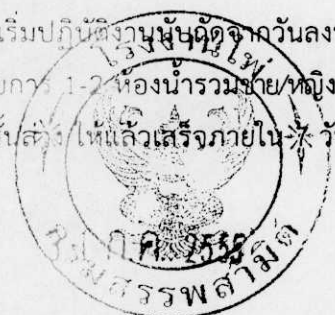 เริ่มปฏิบัติงานนับถัดจากวันลง
โรงงานไพ่
การ 1-2 ห้องน้ำรวมชาย/หญิง
ให้แล้วเสร็จภายใน 7 วั
ก.ค. 255
กรมสรรพสามิต